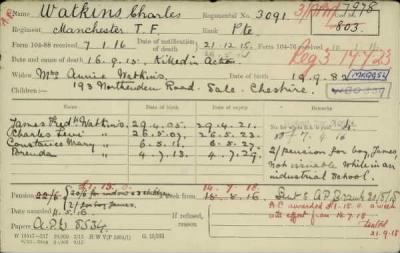 Watkins Charles Regimental No. 3091.
Regiment, Manchester T.F. Rank, Pte.
7978
803.
Form 104-88 received 7.1.16 Date of notification of death 21.12.15 Form 104-76 received
Date and cause of death 16.9.15. Killed in Action Reg 3 14723
Mrs Annie Watkins. Date of birth 19.9.82
Children:— 193 Northenden Road. Sale. Cheshire.
Date of birth Date of expiry
James Fredk Watkins. 29.4.05. 29.4.21.
Charles Levi " 26.5.07. 26.5.23.
Constance Mary " 6.5.11. 6.5.27.
Brenda " 4.7.13. 4.7.29.
2/- pension for boy, James,
Not issuable while in an
industrial School.
Pension 22/6 a week from 14.7.18.
2/- for boy James.
Date awarded 4.5.16 If refused, reason
A.C. awarded £1.15.0 a week
with effect from 14.7.18
21.9.18
Papers A.P.W 5534